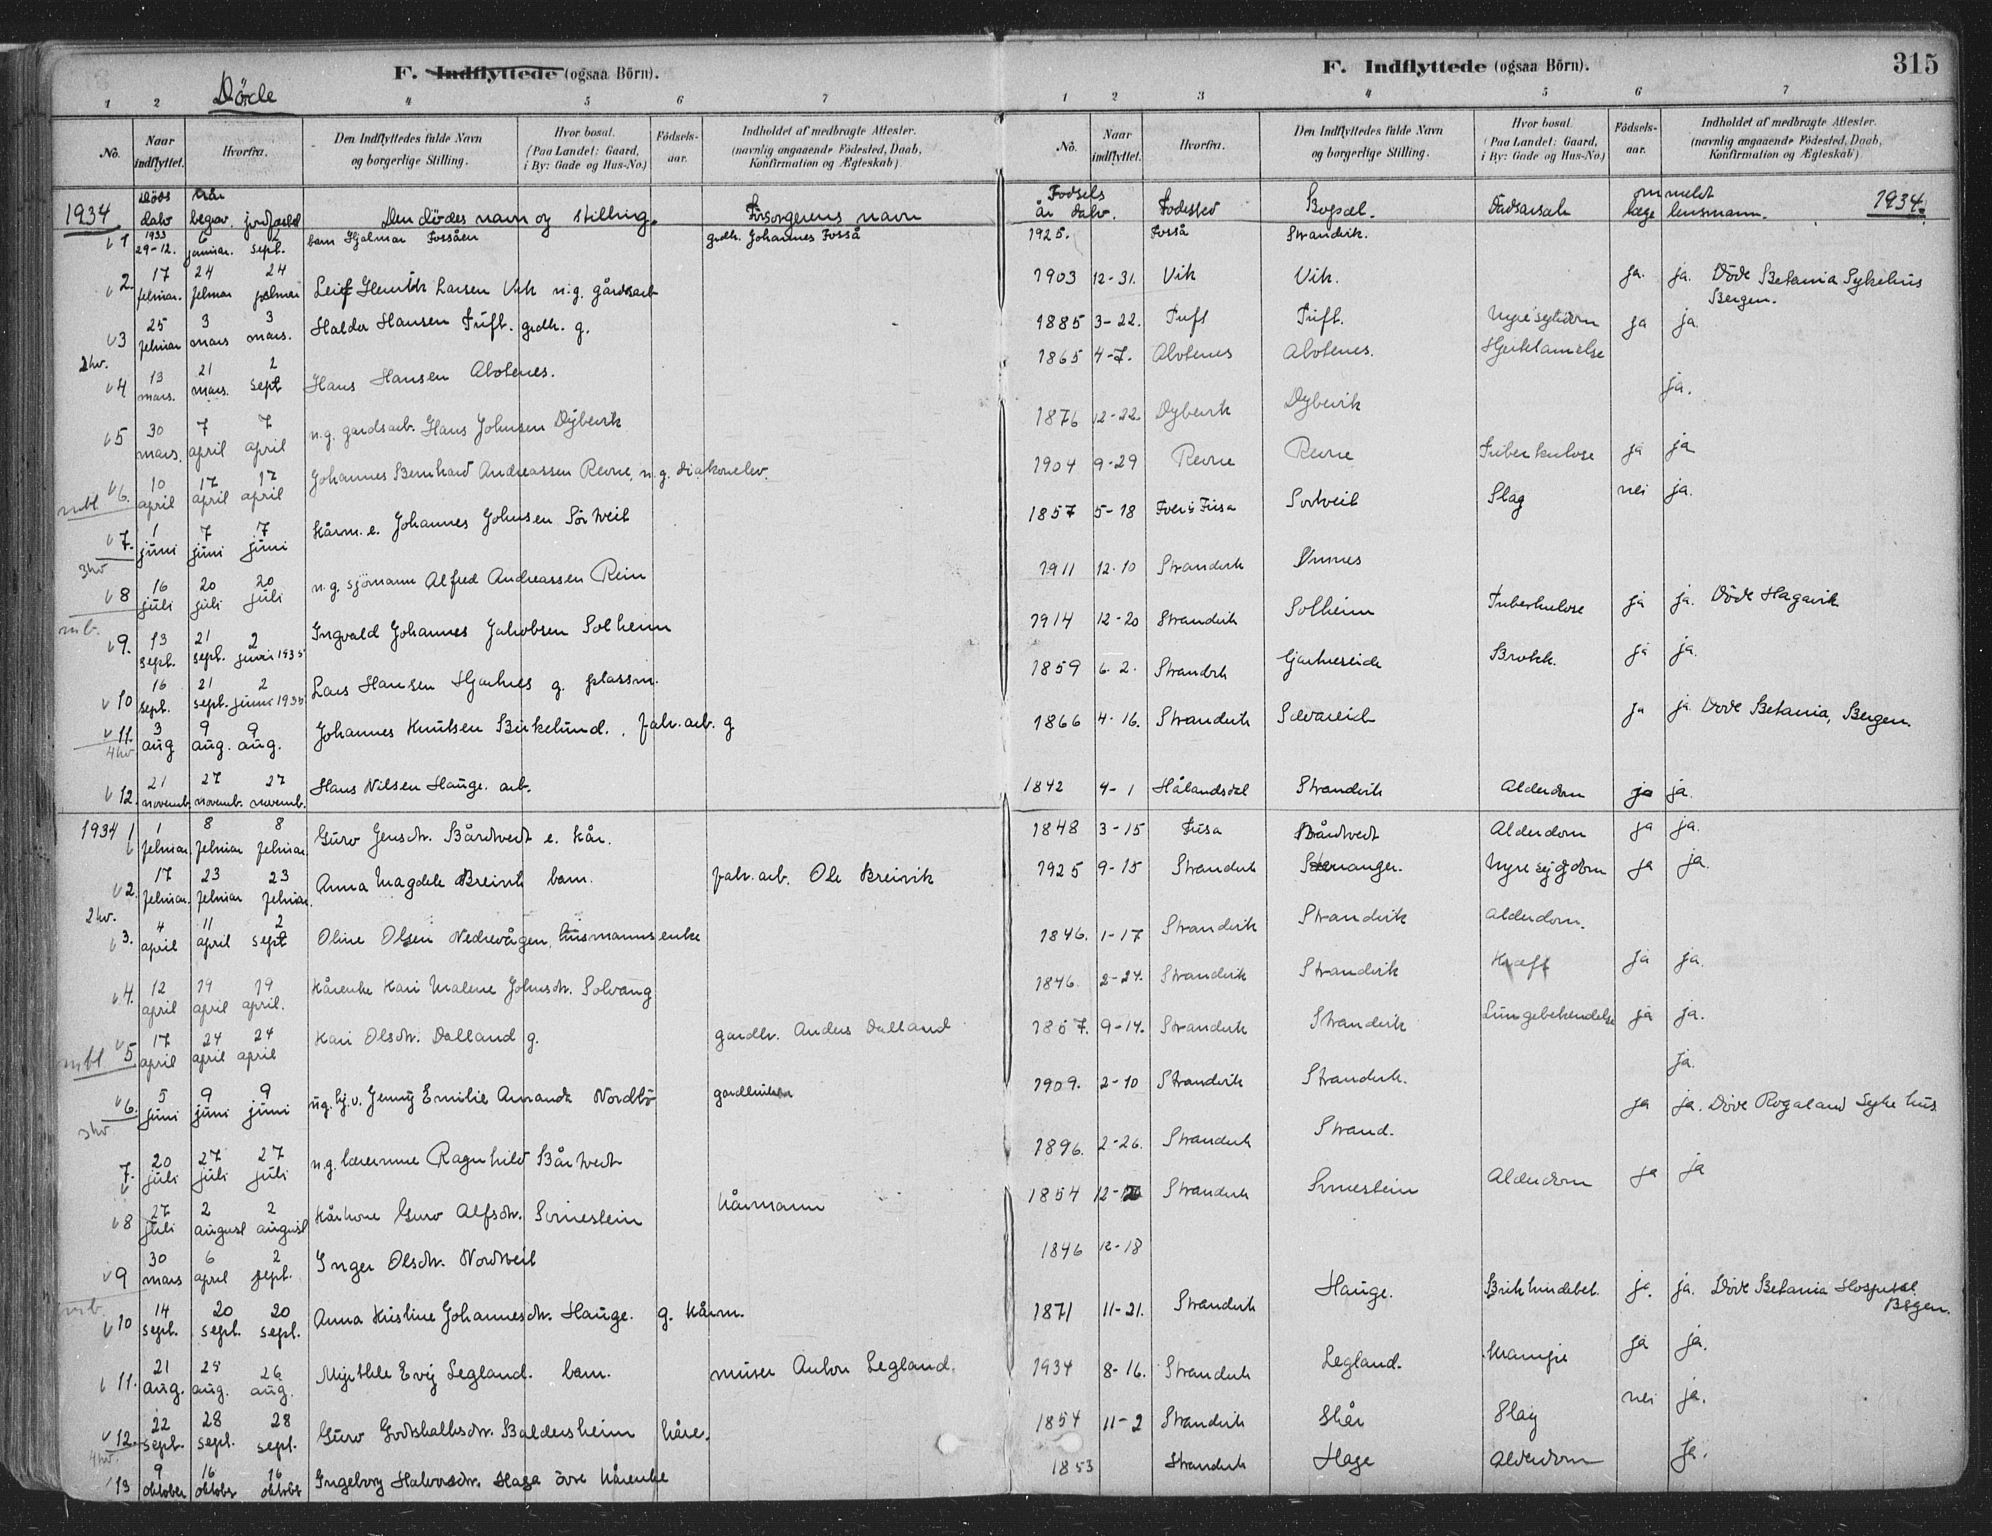 F. Indflyttede (ogsaa Börn).
Döde
1 2 4 5 6 7
No. Naar indflyttet. Hvorfra. Den Indflyttedes fulde Navn og borgerlige Stilling. Hvor bosat. (Paa Landet: Gaard, i By: Gade og Hus-No.) Fødsels-aar. Indholdet af medbragte Attester. (navnlig angaaende Fødested, Daab, Konfirmation og Ægteskab)
1934 Döds dato Når begrav. jordfestet Den dödes navn og stilling. Forsorgerens navn
1 1933 29-12. 6 januar. 2 sept. barn Hjalmar Fossåen grdbr. Johannes Fosså
2. 17 februar. 24 februar 24 februar Leif Henrik Larsen Vik n.g. gårdsarb
3 25 februar 3 mars 3 mars. Haldor Hansen Tuft. grdbr. g.
2hv.
4 13 mars. 21 mars. 2 sept Hans Hansen
5 30 mars. 7 april 7 april n.g. gardsarb. Hans Johnsen Dybevik
mbl 6. 10 april 17 april 17 april Johannes Bernhard Andreassen Revne, n.g. diakonelev.
7. 1 juni 7 juni 7 juni kårm. e. Johannes Johnsen Sörtveit
3hv
8 16 juli 20 juli 20 juli n.g. sjömann Alfred Andreassen
mb.
9. 13 sept. 21 sept. 2 juni 1935 Ingvald Johannes Jakobsen Solheim
10 16 sept. 21 sept. 2 juni 1935 Lars Hansen Hjartnes g. plassm.
11. 3 aug 9 aug. 9 aug. Johannes Knutsen Birkelund. fabr. arb. g
4hv
12. 21 novemb. 27 novemb. 27 novemb. Hans Nilsen Hauge. arb.
1934 1 1 februar 8 februar 8 februar. Guro Jensdtr. Bårdtvedt e. kår.
2. 17 februar. 23 februar 23 februar. Anna Magdele Breivik barn. fabr. arb. Ole Breivik
2hv.
3. 4 april 11 april 2 sept Oline Olsen Nedrevågen, husmannsenke
4. 12 april 19 april 19 april. Kårenke Kari Malene Johnsdtr. Solvang
mbl 5 17 april 24 april 24 april Kari Olsdtr. Dalland g. gardbr. Anders Dalland
6. 5 juni 9 juni 9 juni ug. hj.v. Jenny Emilie Amanda Nordbö
3hv
7. 20 juli 27 juli 27 juli n.g. lærerinne Ragnhild Bårtvedt
8 27 juli 2 august 2 august Kårkone Guro Alfsdtr. kårmann
9 30 mars 6 april 2 sept. Inger Olsdtr. Nordtveit
mb.
10 14 sept. 20 sept. 20 sept. Anna Kristine Johannesdtr. Hauge. g. kårm.
11. 21 aug. aug. 26 aug. Evy Legland. barn. murer Anton Legland.
12. 22 sept. 28 sept. 28 sept. Guro Godskalksdtr. Baldersheim kåre.
4hv.
13 9 oktober 16 oktober 16 oktober Ingeborg Halvorsdtr. Haga övre kårenke
F. Indflyttede (ogsaa Börn).
315
1 2 3 4 5 6 7
No. Naar indflyttet. Hvorfra. Den Indflyttedes fulde Navn og borgerlige Stilling. Hvor bosat. (Paa Landet: Gaard, i By: Gade og Hus-No.) Fødsels-aar. Indholdet af medbragte Attester. (navnlig angaaende Fødested, Daab, Konfirmation og Ægteskab)
Fødsels år dato. Fødested Bopæl. Dødsårsak ommeldt læge lensmann. 1934.
1925. Fosså Strandvik.
1903 12-31. Vik Vik. ja. ja. Döde Betania Sykehus Bergen.
1885 3-22. Tuft Tuft. Nyresykdom ja ja.
1865 4-7. Hjertelamelse
ja.
1876 12-22. Dybevik Dybevik
1904 9-29 Revne Revne Tuberkulose ja ja
1857 5-18 Fusa Sortveit Slag nei ja.
1911 12-10 Strandvik
1914 12-20 Strandvik Solheim Tuberkulose ja ja. Döde Hagavik
1859 6-2. Strandvik Gjertneseide Brokk. ja ja.
1866 4-16. Strandvik ja ja. Döde Betania, Bergen.
1842 4-1 Hålandsdal Strandvik Alderdom ja ja.
1848 3-15 Fusa Bårdtvedt Alderdom ja ja.
1925 9-15 Strandvik Nyresygdom ja ja.
1846. 1-17 Strandvik Strandvik Alderdom.
1846. 2-24. Strandvik Strandvik Kræft ja ja.
1857. 9-14. Strandvik Strandvik Lungebetendelse ja ja.
ja.
1909. 2-10 Strandvik Strandvik.
ja ja. Döde Rogaland Sykehus
1896. 2-26. Strandvik Strand.
1854 12- Strandvik Alderdom ja ja
1846 12-18
1871 11-21. Strandvik Hauge. ja. ja. Döde Betania Hospital Bergen.
1934 8-16. Strandvik Legland. Krampe ja ja.
1854 11-2 Strandvik Skår Slag nei ja.
1853 Strandvik Hage Alderdom ja.